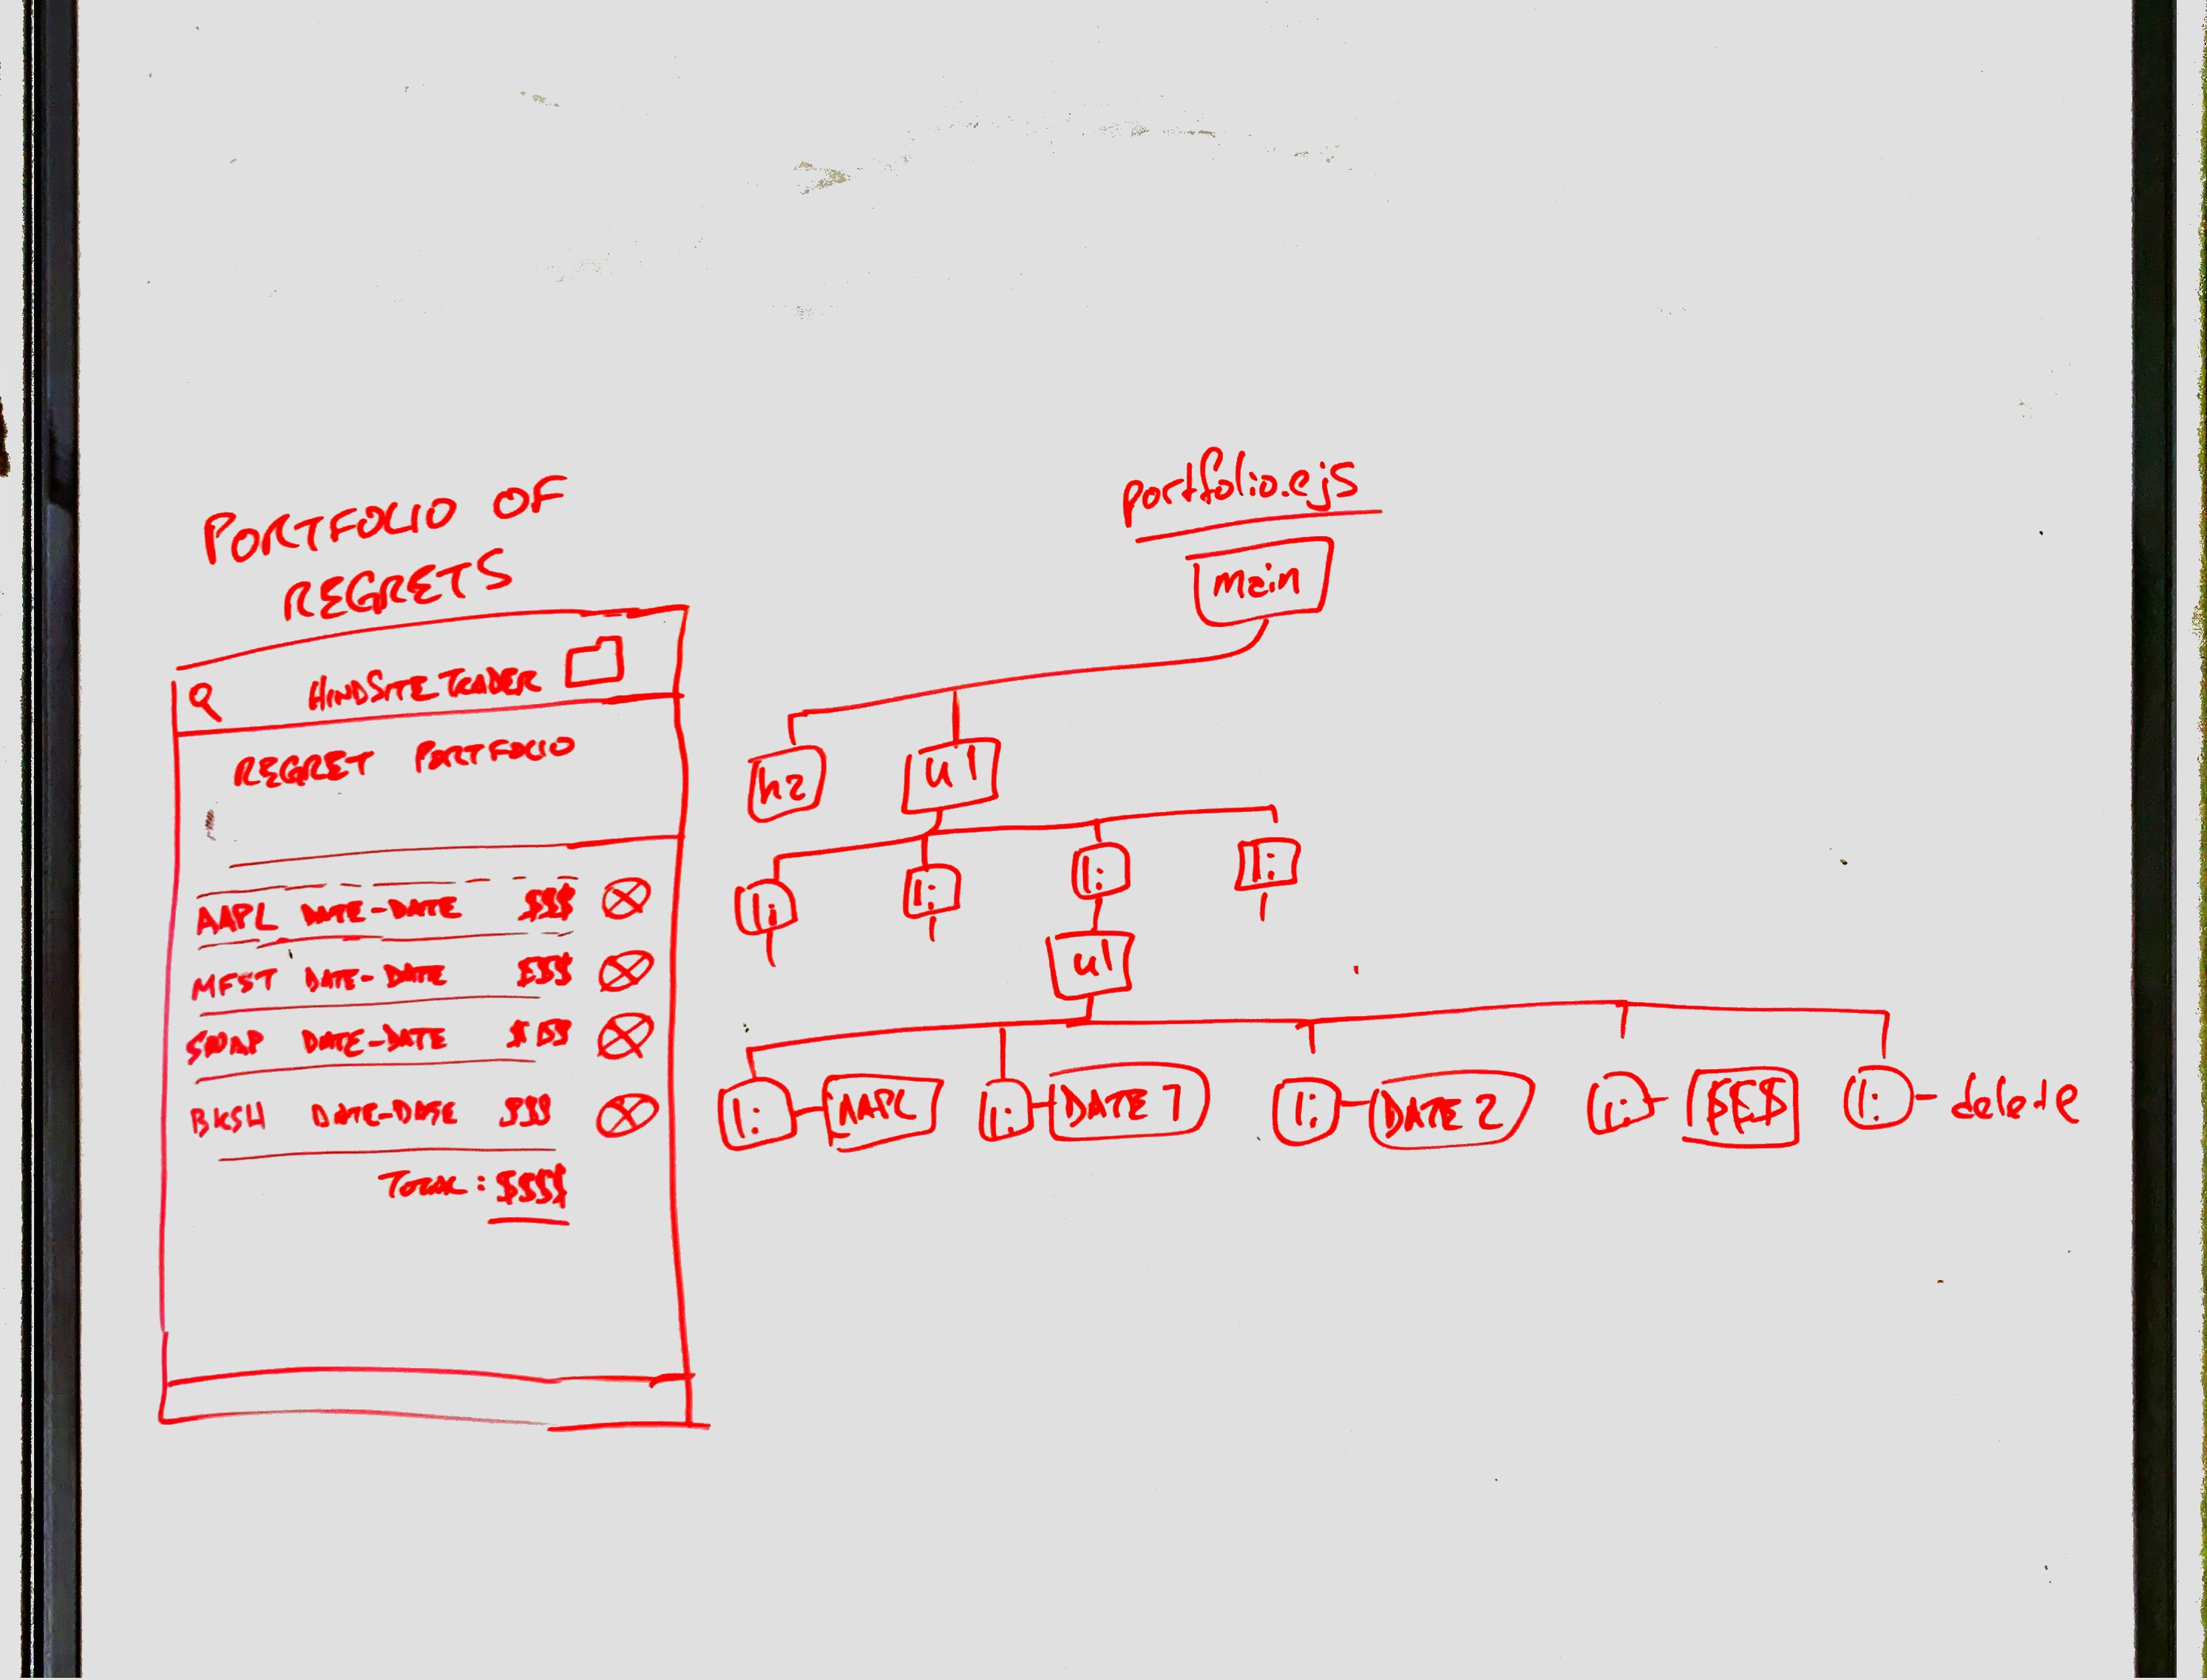 PORTFOLIO OF
REGRETS
HINDSITE TRADER
REGRET PORTFOLIO
AAPL DATE-DATE $$$
MFST DATE-DATE $$$
SNAP DATE-DATE $$$
BKSH DATE-DATE $$$
TOTAL: $$$$
portfolio.ejs
main
h2 ul
li li li li
ul
li AAPL li DATE 1 li DATE 2 li $$$ li - delete